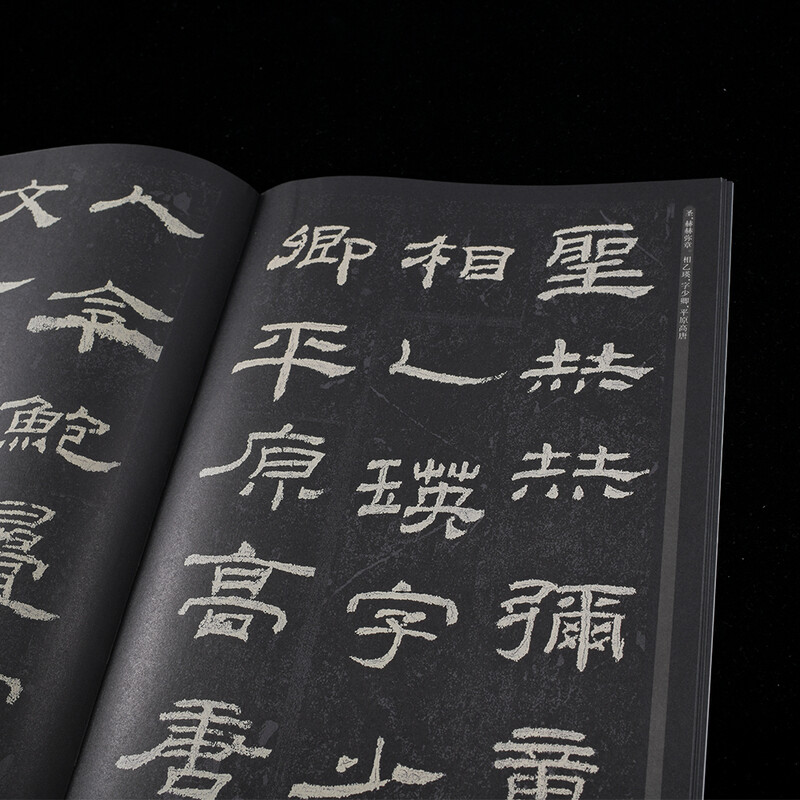 圣，赫赫弥章。相乙瑛，字少卿，平原高唐
聖赫赫彌章
相乙瑛字少
卿平原高唐
人令鮑疊
文